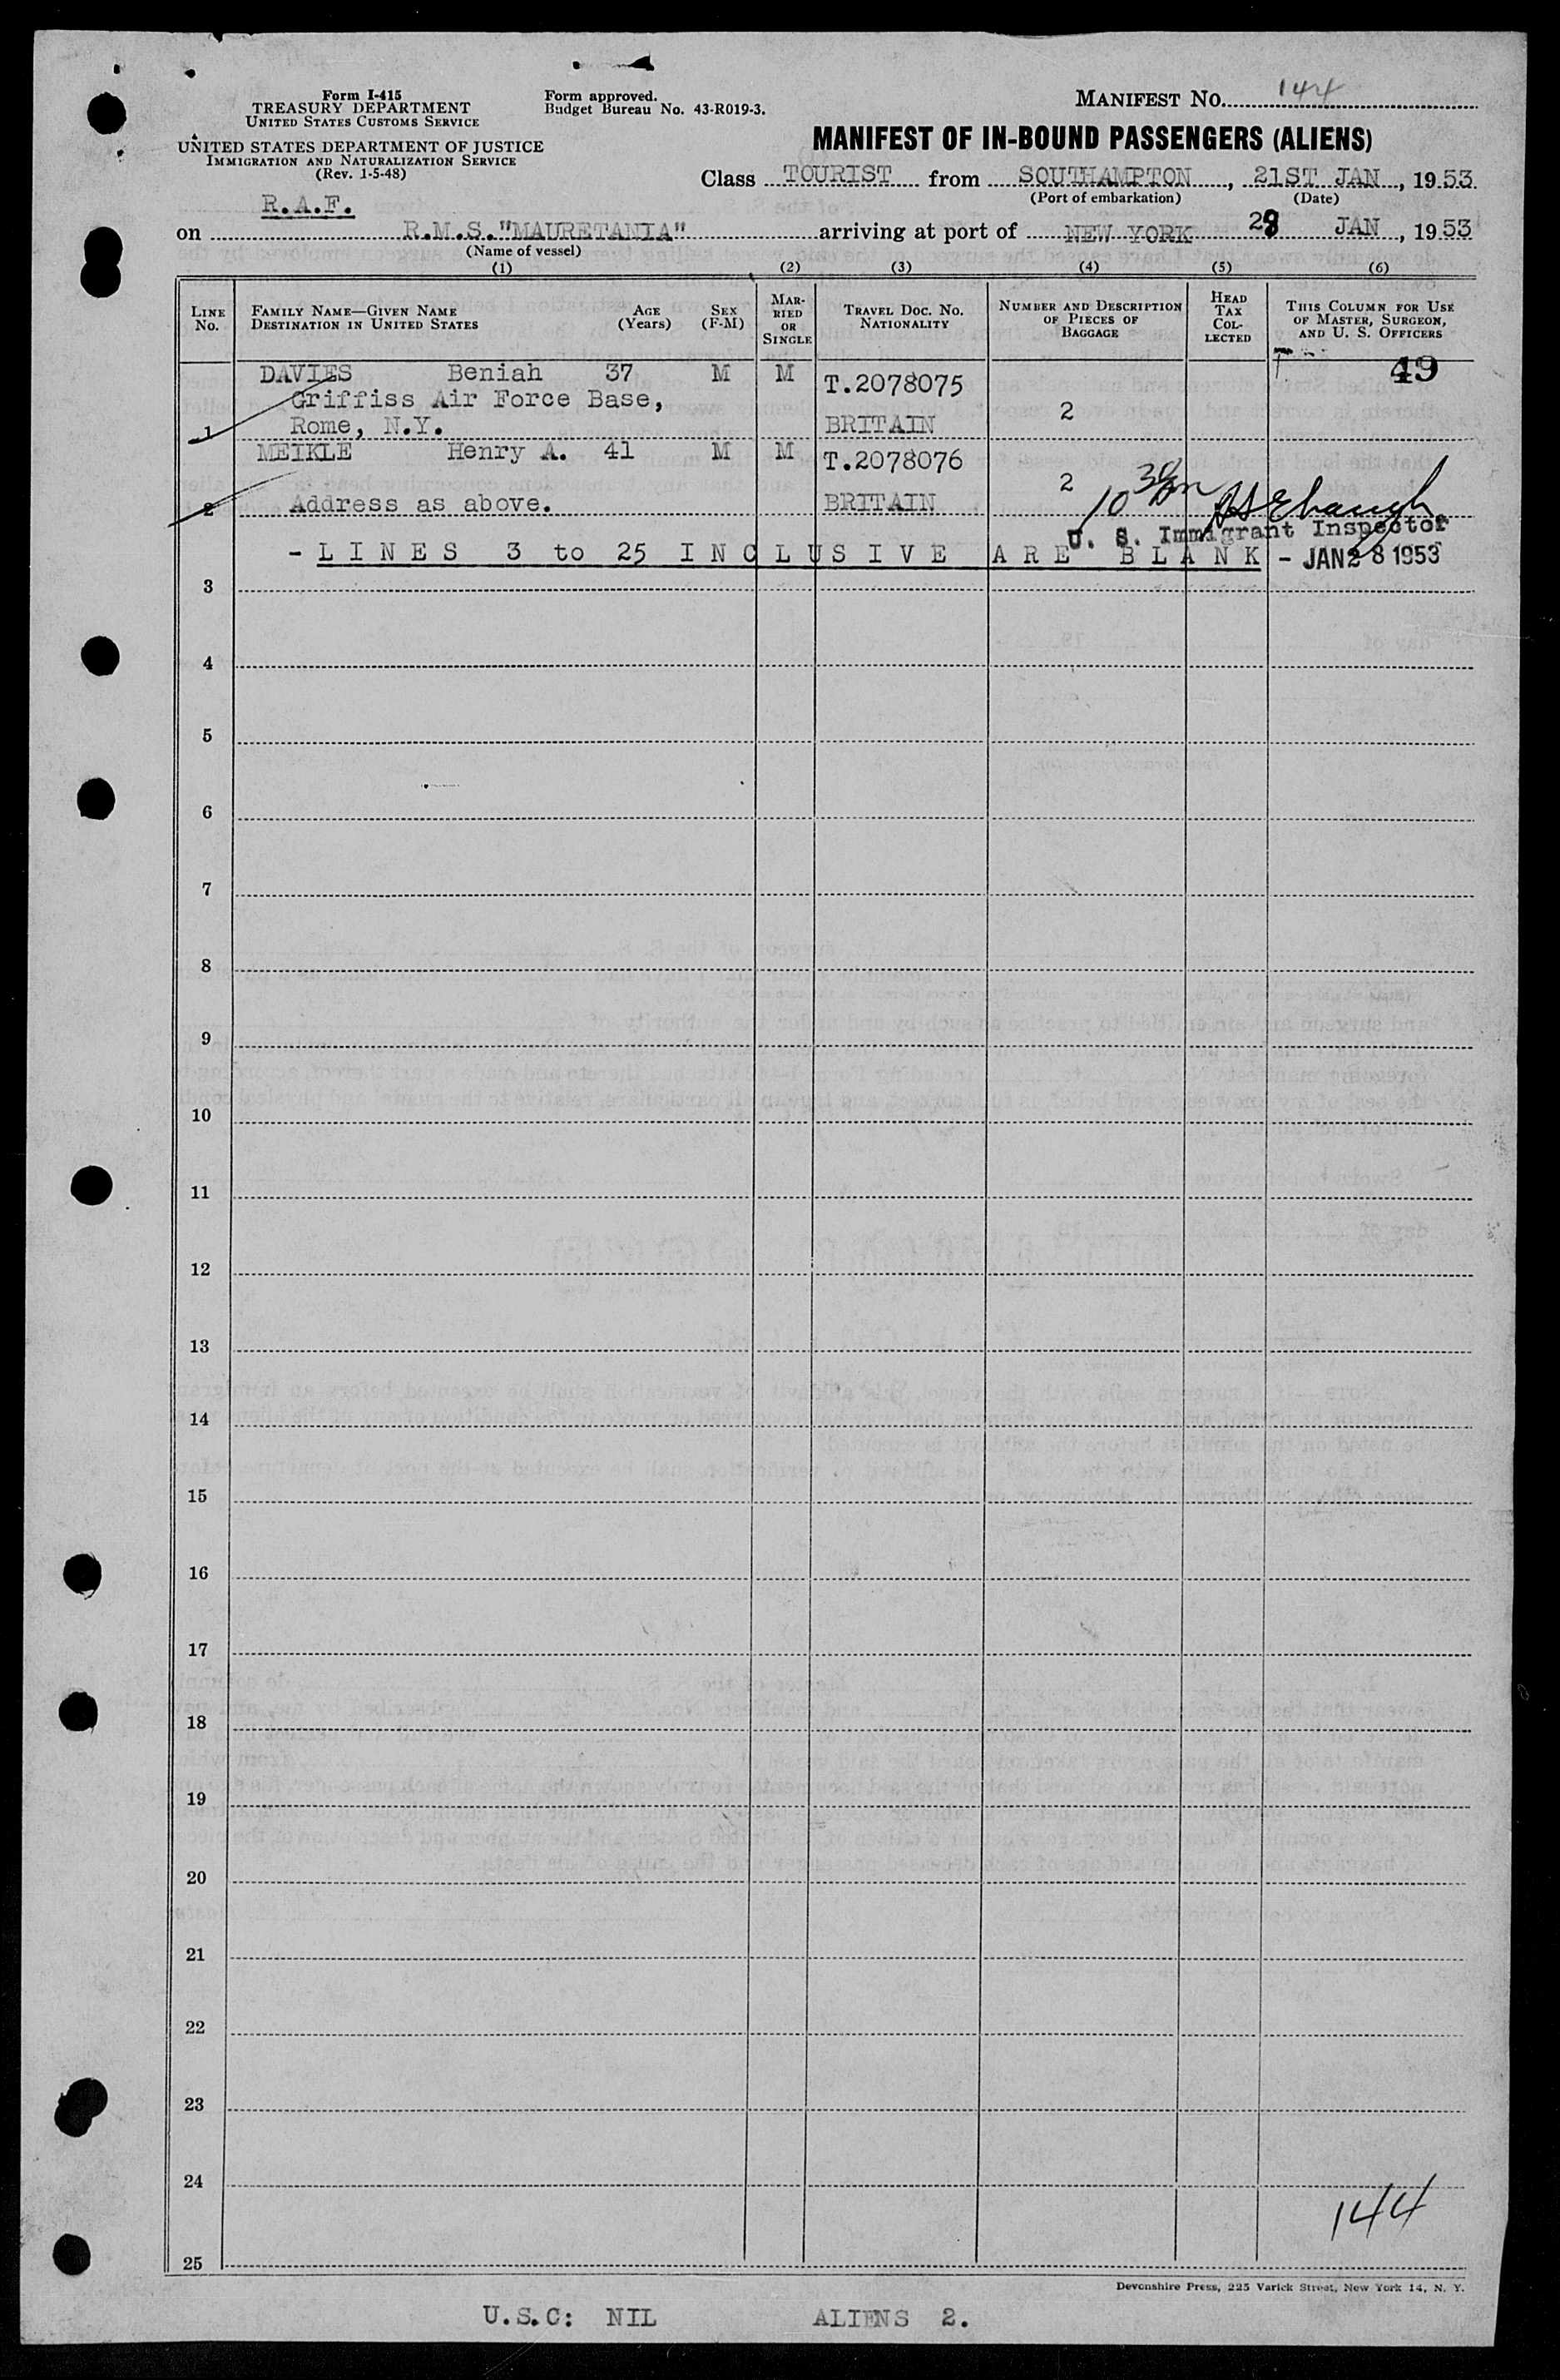 Form I-415
TREASURY DEPARTMENT
UNITED STATES CUSTOMS SERVICE
UNITED STATES DEPARTMENT OF JUSTICE
IMMIGRATION AND NATURALIZATION SERVICE
(Rev. 1-5-48)
Form approved.
Budget Bureau No. 43-R019-3.
MANIFEST NO. 144
MANIFEST OF IN-BOUND PASSENGERS (ALIENS)
Class TOURIST from SOUTHAMPTON, 21ST JAN, 1953
(Port of embarkation) (Date)
R.A.F.
on R.M.S."MAURETANIA" arriving at port of NEW YORK 28 JAN, 1953
(Name of vessel)
(1) (2) (3) (4) (5) (6)
LINE No. FAMILY NAME—GIVEN NAME DESTINATION IN UNITED STATES AGE (Years) SEX (F-M) MARRIED OR SINGLE TRAVEL DOC. NO. NATIONALITY NUMBER AND DESCRIPTION OF PIECES OF BAGGAGE HEAD TAX COLLECTED THIS COLUMN FOR USE OF MASTER, SURGEON, AND U. S. OFFICERS
49
DAVIES Beniah 37 M M T.2078075
Griffiss Air Force Base,
1 Rome, N.Y. BRITAIN 2
MEIKLE Henry A. 41 M M T.2078076
2 Address as above. BRITAIN 2
10 30 am
U. S. Immigrant Inspector
- LINES 3 to 25 INCLUSIVE ARE BLANK - JAN 28 1953
3
4
5
6
7
8
9
10
11
12
13
14
15
16
17
18
19
20
21
22
23
24
144
25
Devonshire Press, 225 Varick Street, New York 14, N. Y.
U.S.C: NIL ALIENS 2.